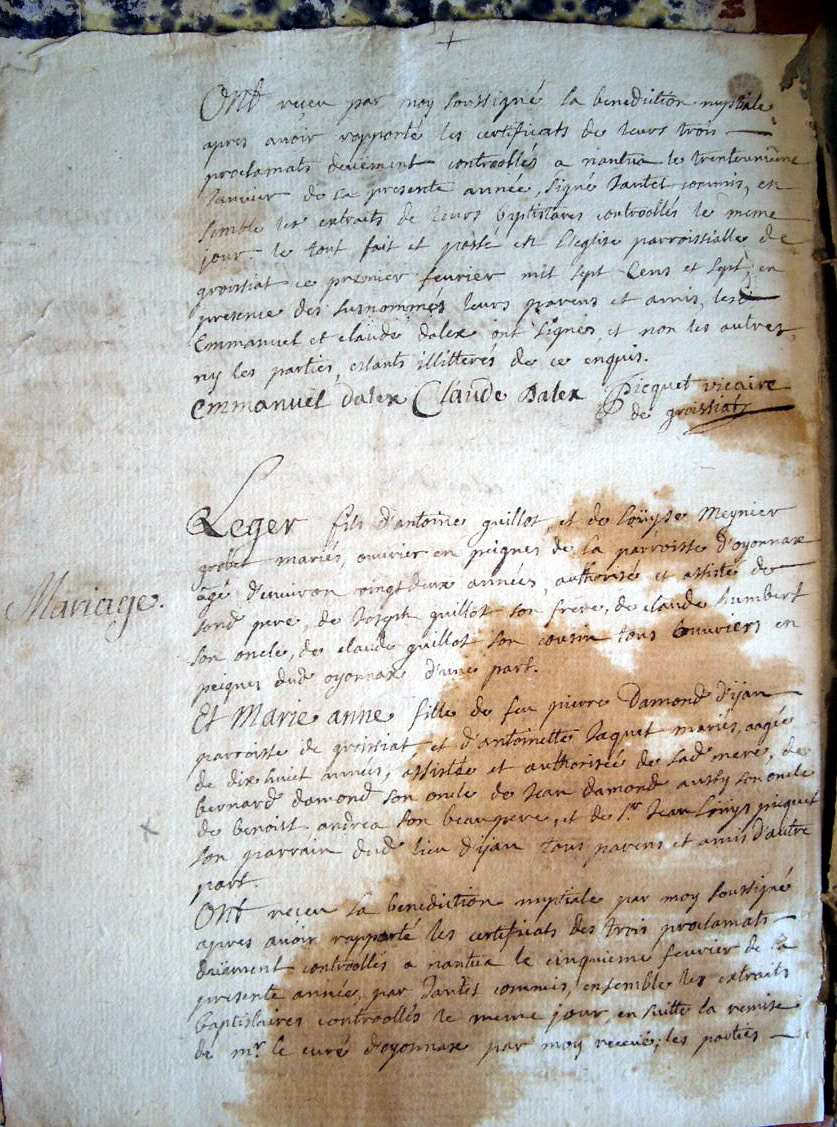 Ont reçeu par moy soussigné la benediction nuptiale
apres avoir rapporté les certificats de leurs trois
proclamats deüement controollés a nantua le trenteunième
Janvier de la presente année, signé Jantet commis, en
semble les extraits de leurs baptistaires controollés le meme
jour. le tout fait et passé en l'eglise parroissialle de
groissiat ce premier fevrier mil sept cens et sept, en
presence des susnommés leurs parens et amis, led
Emmanuel et claude dalex ont signés, et non les autres,
ny les parties, estants illitterés de ce enquis.
Emmanuel dalex Claude Dalex Picquet vicaire
de groissiat
Leger fils d'antoine guillot, et de Loüyse Meynier
grobet mariés, ouvrier en peignes de la parroisse d'oyonnax
âgé d'environ vingtdeux années, authorisé et assisté de
sond pere, de Joseph guillot son frere, de claude humbert
son oncle, de claude guillot son cousin tous ouvriers en
Mariage.
peignes dud oyonnax d'une part.
Et Marie anne fille de feu pierre Damond d'ijan
parroisse de groissiat et d'antoinette Jaquet mariés, aagée
de dix huict années, assistée et authorisée de sad mere, de
bernard damond son oncle de Jean damond aussy son oncle
de benoist andrea son beaupere, et de Sr. Jean Loüys picquet
son parrain dud lieu d'ijan tous parens et amis d'autre
part.
Ont reçeu la benediction nuptiale par moy soussigné
apres avoir rapporté les certificats des trois proclamats
deüement controollés a nantua le cinquieme fevrier de la
presente année, par Jantet commis, ensemble les extraits
baptistaires controollés le meme jour, en suitte la remise
de mr. le curé d'oyonnax par moy receüe, les parties